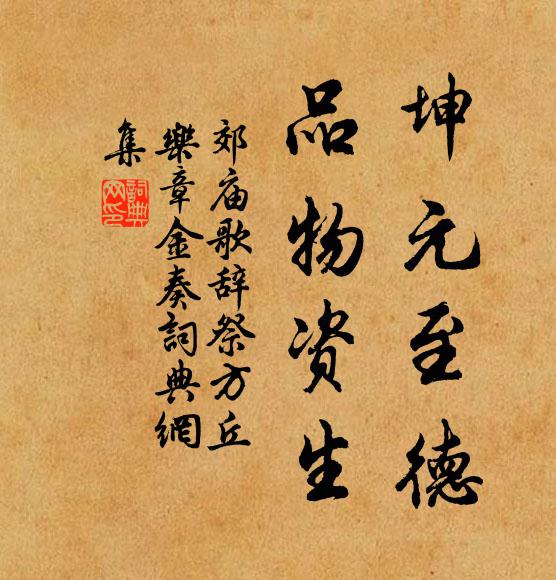 坤元至德
品物资生
郊庙歌辞祭方丘
樂章金奏詞典網
集
詞典
网印